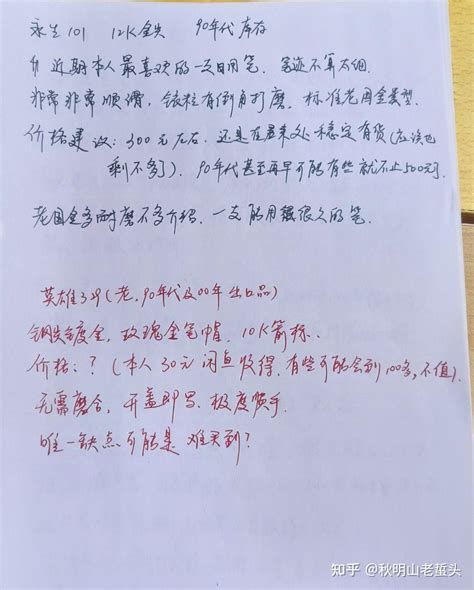 永生101 12K金尖 90年代库存
近期本人最喜欢的一支日用笔、笔迹不算太细.
非常非常顺滑，铱粒有倒角打磨。标准老国金类型.
价格建议：300元左右. 还是在君来处 稳定有货(应该也
剩不多了). 90年代甚至再早可能有些就不止500元了.
老国金多耐磨不多介绍. 一支能用很久的笔.
英雄329(老.90年代及00年出口品)
钢尖镀金，玫瑰金笔帽. 10K箭标.
价格：？(本人30元闲鱼收得. 有些可能会到100多，不值)
无需磨合，开盖即写、极度顺手.
唯一缺点可能是 难买到?
知乎 @秋明山老蜇头